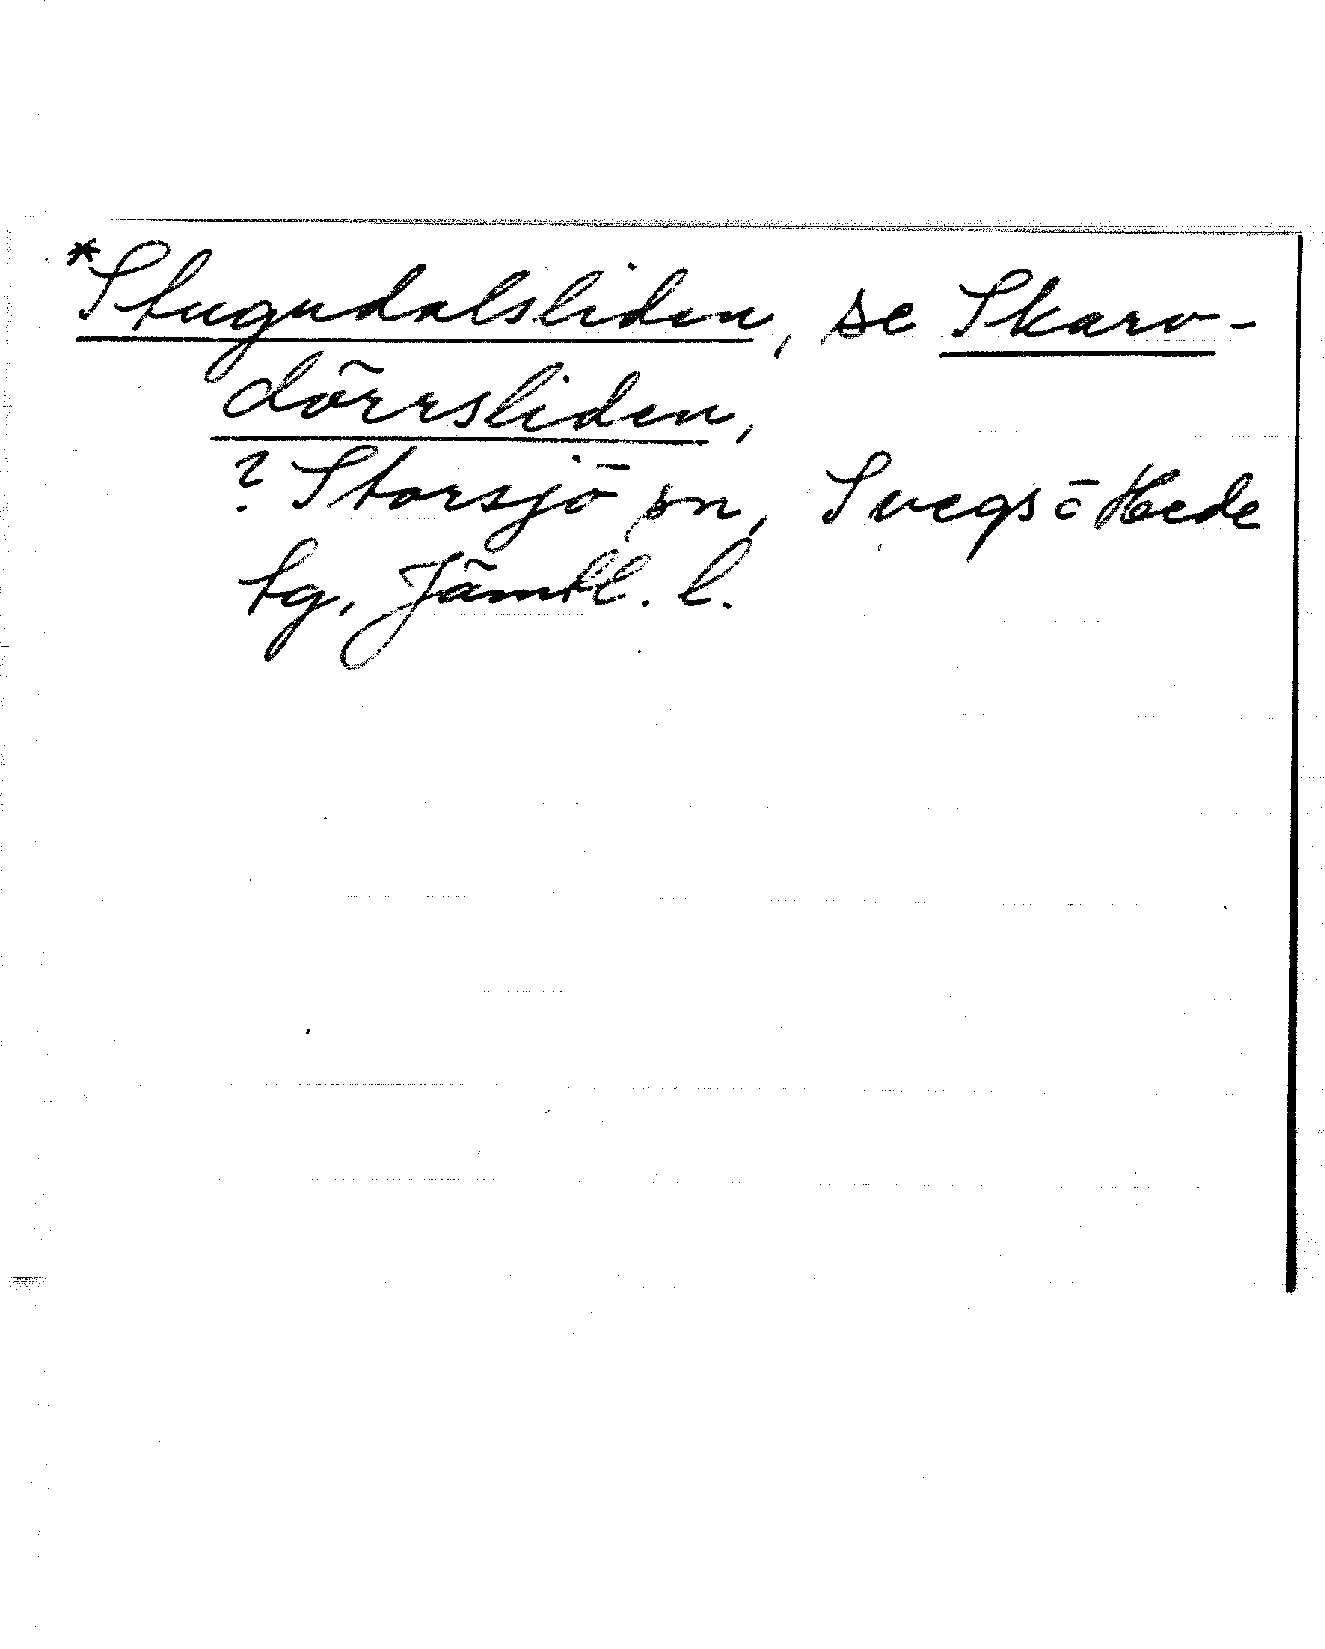 *Stugudalsliden, se Skarv-
dörrsliden,
? Storsjö sn, Svegs o Hede
tg, Jämtl. l.